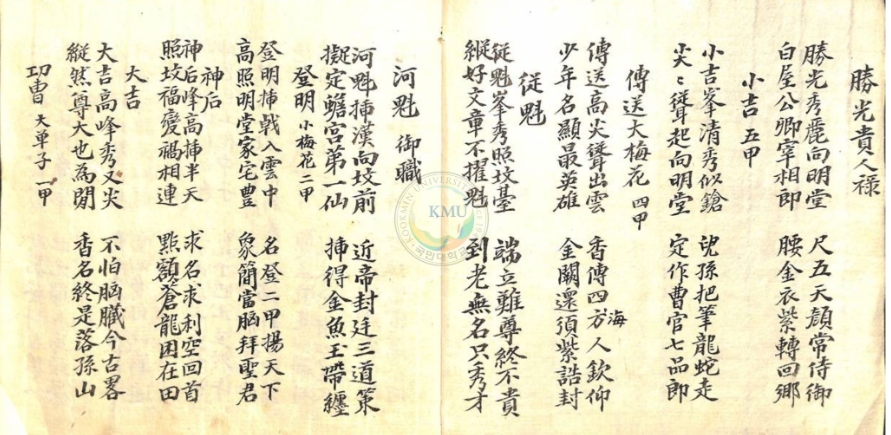 勝光貴人祿
勝光秀麗向明堂 尺五天顔常侍御
白屋公卿宰相郎 腰金衣紫轉回鄉
小吉 五甲
小吉峯清秀似鎗 兒孫把筆龍蛇走
尖〻聳起向明堂 定作曹官七品郎
傳送大梅花 四甲
傳送高尖聳出雲 香傳四海人欽仰
少年名顯最英雄 金闕還須紫誥封
從魁
從魁峯秀照坟臺 端立難尊終不貴
縱好文章不擢魁 到老無名只秀才
河魁 御職
河魁揷漢向坟前 近帝封廷三道策
擬定蟾宮第一仙 揷得金魚玉帶纏
登明 小梅花二甲
登明揷戟入雲中 名登二甲揚天下
高照明堂家宅豊 象簡當腦拜聖君
神后
神后峰高揷半天 求名求利空回首
照坟福變禍相連 點額蒼龍困在田
大吉
大吉高峰秀又尖 不怕腦臟今古畧
縱然尊大也為閒 香名終是落孫山
功曺 天單子 一甲
KOOKMIN UNIVERSITY
KMU
국민대학교